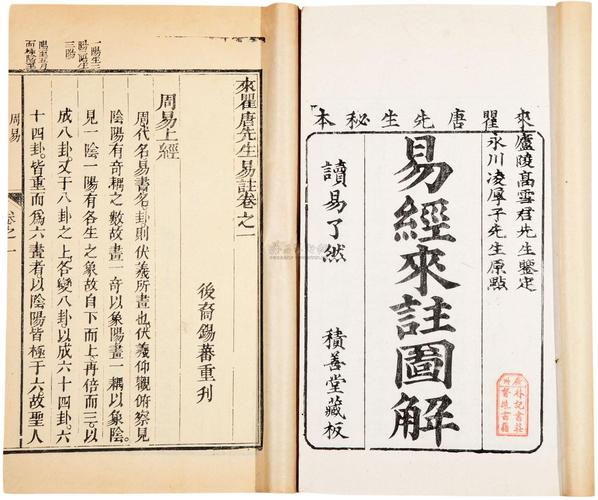 來瞿唐先生秘本
廬陵高雪君先生鑒定
永川凌厚子先生原點
易經來註圖解
讀易了然
積善堂藏板
來瞿唐先生易註卷之一
後裔錫蕃重刊
周易上經
周代名易書名卦則伏羲所畫也伏羲仰觀俯察見
陰陽有奇耦之數故畫一奇以象陽畫一耦以象陰
見一陰一陽有各生之象故自下而上再倍而三以
成八卦又于八卦之上各變八卦以成六十四卦六
十四卦皆重而爲六畫者以陰陽皆極于六故聖人
周易
卷之一